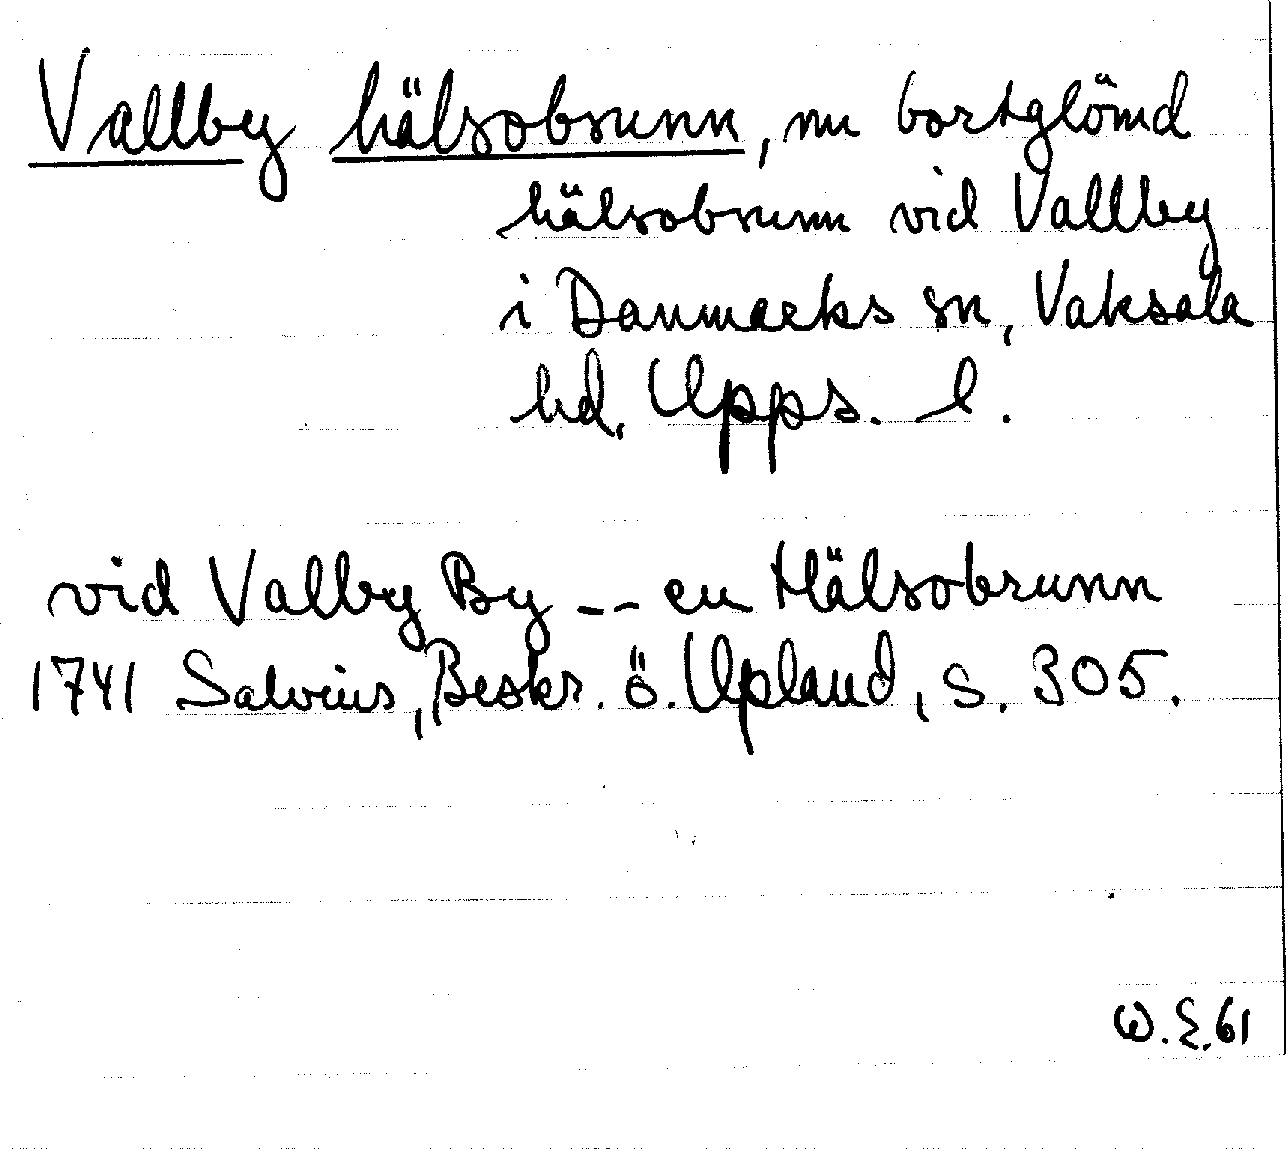 Vallby hälsobrunn, nu bortglömd
hälsobrunn vid Vallby
i Danmarks sn, Vaksala
hd, Upps. l.
vid Valby By -- en Hälsobrunn
1741 Salvius, Beskr. ö. Upland, s. 305.
W.E. 61